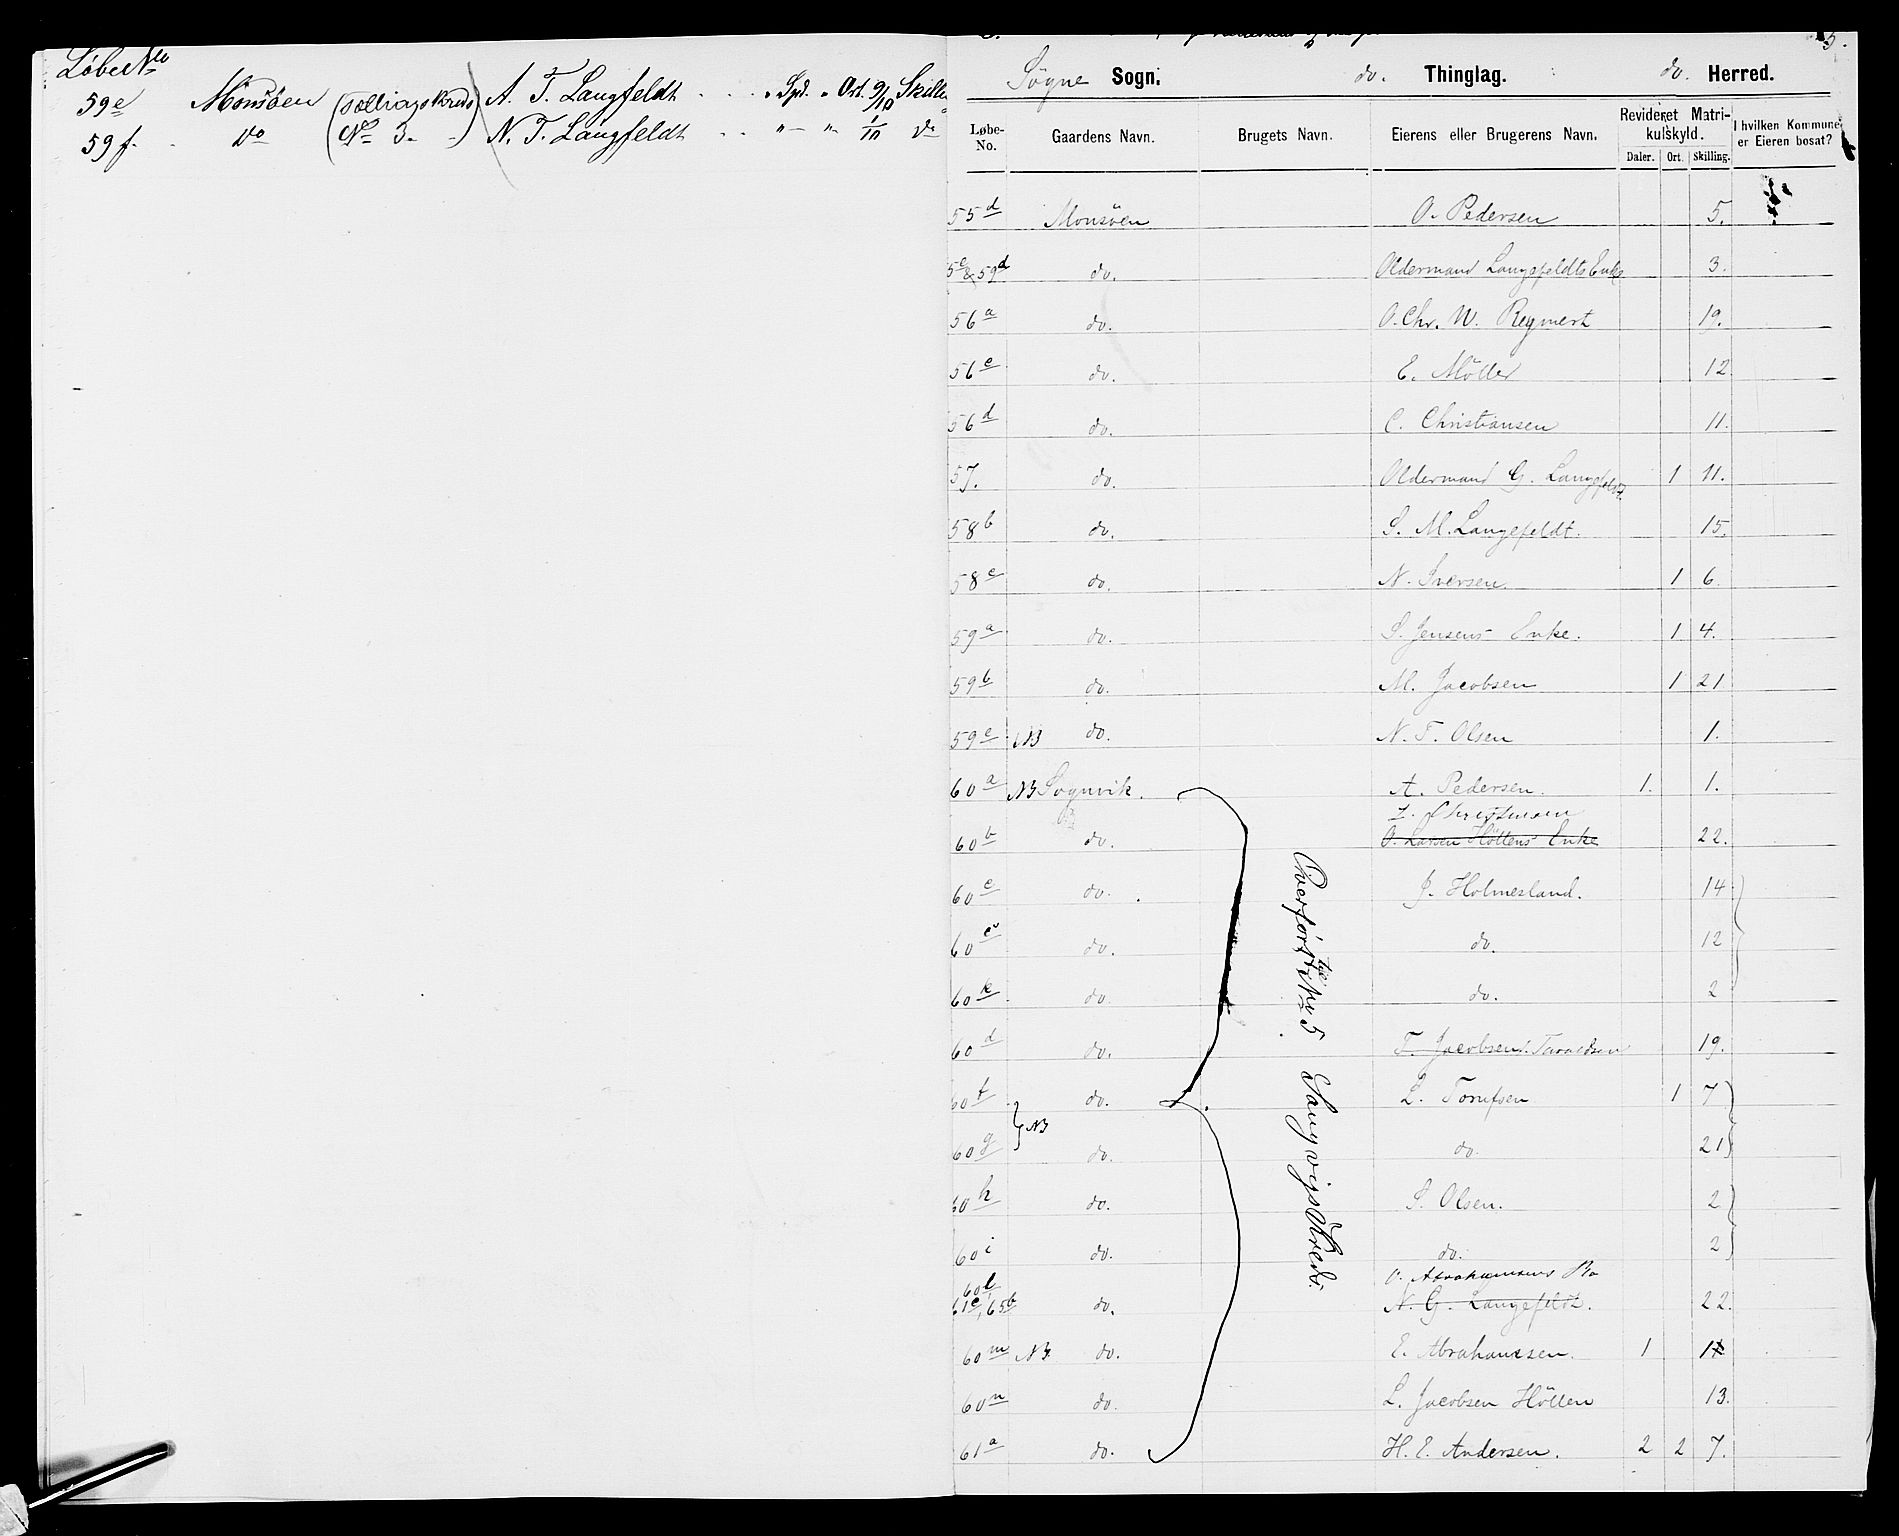 Løbe No
59e Monsöen (Tællingskreds A. T. Langfeldt . . . „ Spd. „ Ort. 9/10 Skill
59f. . Do (No 3. - ) N. T. Langfeldt . . „ — „ 1/10 Do
5.
Søgne Sogn; do. Thinglag. do. Herred.
Løbe-No. Gaardens Navn. Brugets Navn. Eierens eller Brugerens Navn. Revideret Matrikulskyld. I hvilken Kommune er Eieren bosat?
Daler. Ort. Skilling.
55d Monsöen O. Pedersen 5.
5e & 59d do. Oldermand Langefeldts Enke 3.
56a do. O. Chr. W. Regmert 19.
56e do. E. Möller 12
56d do. C. Christiansen 11.
57. do. Oldermand G. Langefeldt 1 11.
58b do. S. M. Langefeldt. 15.
58c do. N. Iversen. 1 6
59a do. S. Jensens Enke. 1 4.
59b do. M. Jacobsen 1 21
59c NB do. N. T. Olsen 1.
60a NB Sognvik. A. Pedersen. 1. 1.
L. Christensen
60b do. O. Larsen Höllens Enke 22.
60c do. J. Holmesland. 14
60e do. do. 12
60k do. do. 2
60d do. T. Jacobsen. Taraldsen 19.
60f do. L. Tomesen 1 7
NB
60g do. do. 21
60h do. S. Olsen. 2
60i do. do. 2
60l O. Abrahamsens Bo
61c, 65b do. N. G. Langefeldt. 22.
60m NB do. E. Abrahamsen. 1 1
60n do. L. Jacobsen Höllen 13.
61a do. H. E. Andersen. 2 2 7.
Overført til No 5 Sangvigs Kreds.